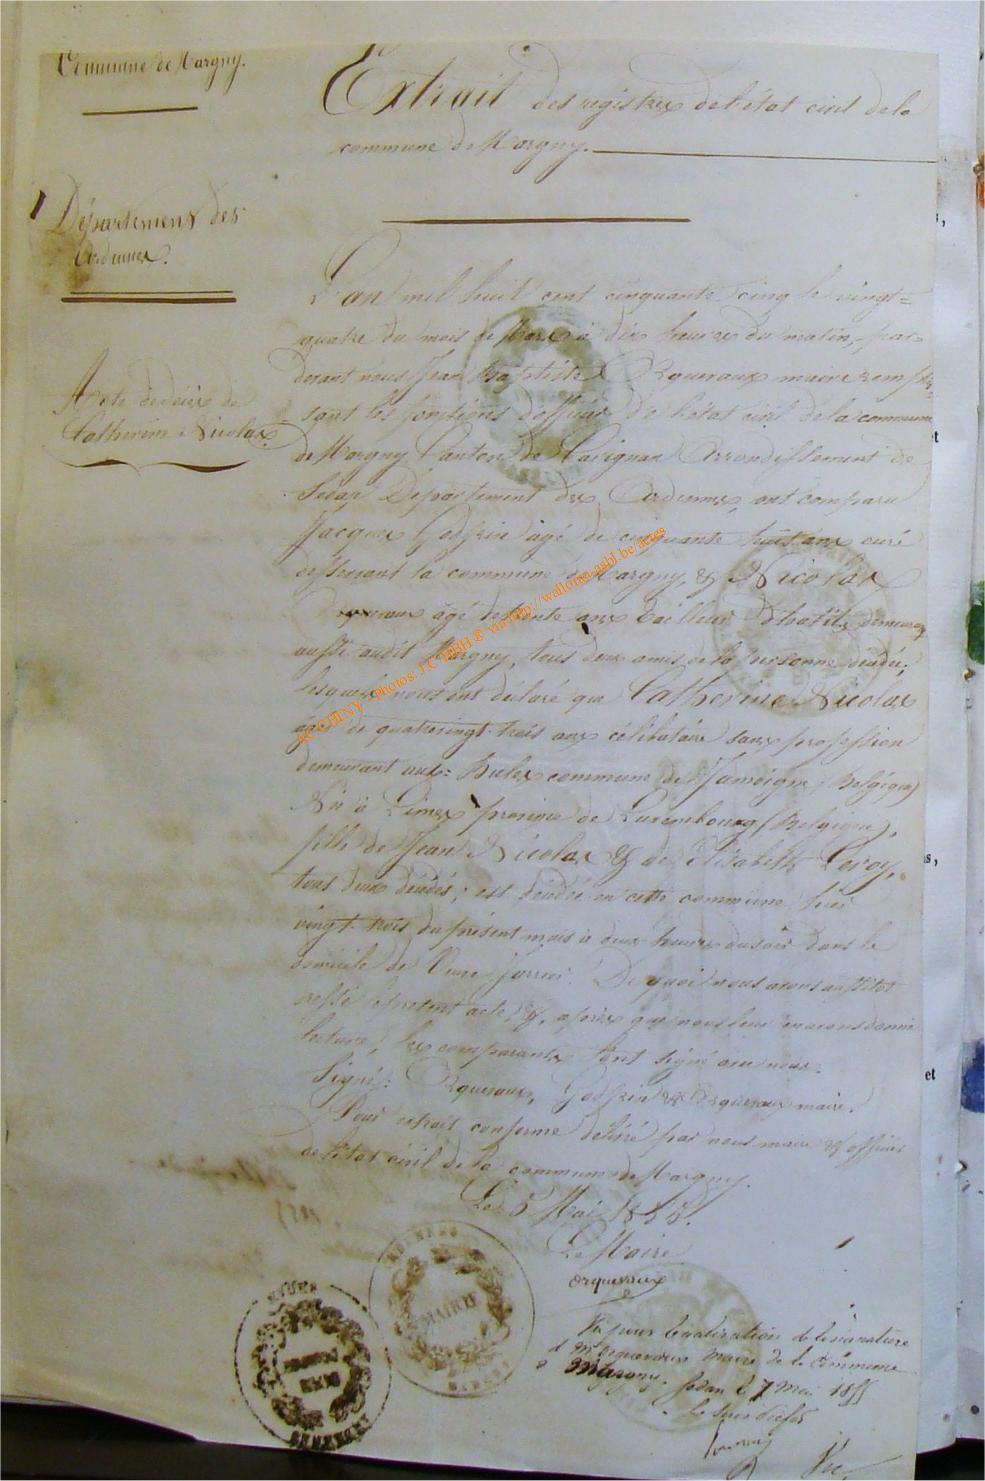 Commune de Margny.
Extrait des registres de l'état civil de la
commune de Margny.
Département des
Ardennes.
L'an mil huit cent cinquante cinq le vingt=
quatre du mois de Mars à dix heures du matin, par
devant nous Jean Baptiste Orquevaux maire remplis-
sant les fonctions d'officier de l'état civil de la commune
de Margny Canton de Carignan Arrondissement de
Sedan Département des Ardennes, ont comparu
Acte de décès de
Catherine Nicolas
Jacques Godfrin âgé de cinquante huit ans curé
desservant la commune de Margny, & Nicolas
Orquevaux âgé de trente ans tailleur d'habits demeurant
aussi audit Margny, tous deux amis de la personne décédée;
lesquels nous ont déclaré que Catherine Nicolas
âgée de quatre vingt-trois ans célibataire sans profession
demeurant aux= Bulles commune de Jamoigne (Belgique)
Née à Limes province de Luxembourg (Belgique),
fille de Jean Nicolas & de Elisabeth Leroy,
tous deux décédés; est décédée en cette commune hier
vingt-trois du présent mois à deux heures du soir dans le
domicile de
De quoi nous avons aussitôt
dressé le présent acte, &, après que nous leur en avons donné
lecture, les comparants l'ont signé avec nous.
Signé: Orquevaux, Godfrin & Orquevaux maire.
Pour extrait conforme délivré par nous maire & officier
de l'état civil de la commune de Margny.
Le 5 Mai 1855.
Le Maire
Orquevaux
Vu pour légalisation de la signature
d Mr Orquevaux Maire de la Commune
d Margny. Sedan le 7 Mai 1855
Le Sous Préfet
ARDENNES
MAIRIE
AC CHINY - photos J.C. MHH ® via http://wallonia-asbl.be/actes
s,
et
s,
et